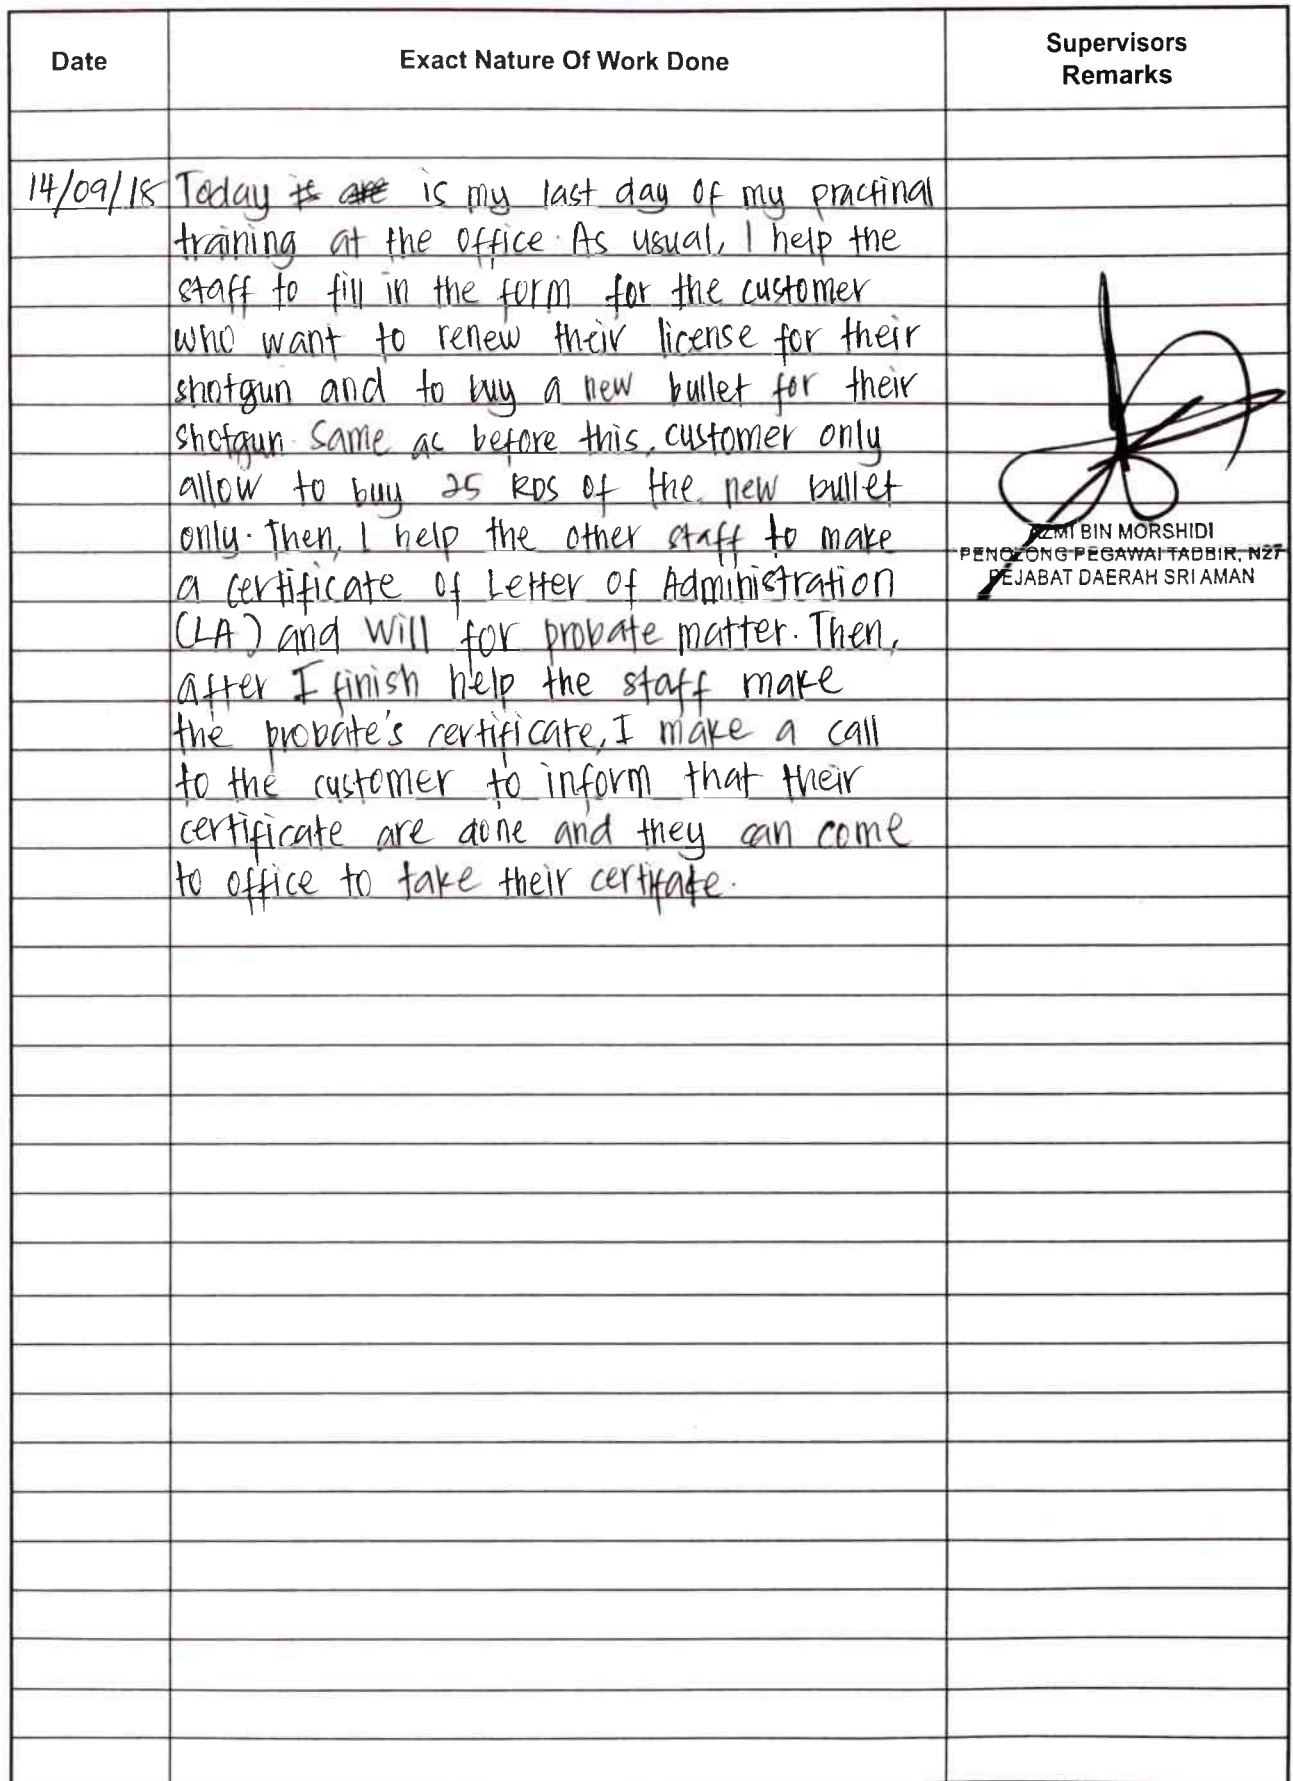 Date
Exact Nature Of Work Done
Supervisors
Remarks
14/09/18 Today is are is my last day of my practinal
training at the office. As usual, I help the
staff to fill in the form for the customer
who want to renew their license for their
shotgun and to buy a new bullet for their
shotgun. Same as before this, customer only
allow to buy 25 RDS of the new bullet
only. Then, I help the other staff to make
a certificate of Letter of Administration
(LA) and Will for probate matter. Then,
after I finish help the staff make
the probate's certificate, I make a call
to the customer to inform that their
certificate are done and they can come
to office to take their certifate.
BIN MORSHIDI
PENOLONG PEGAWAI TADBIR, N27
PEJABAT DAERAH SRI AMAN